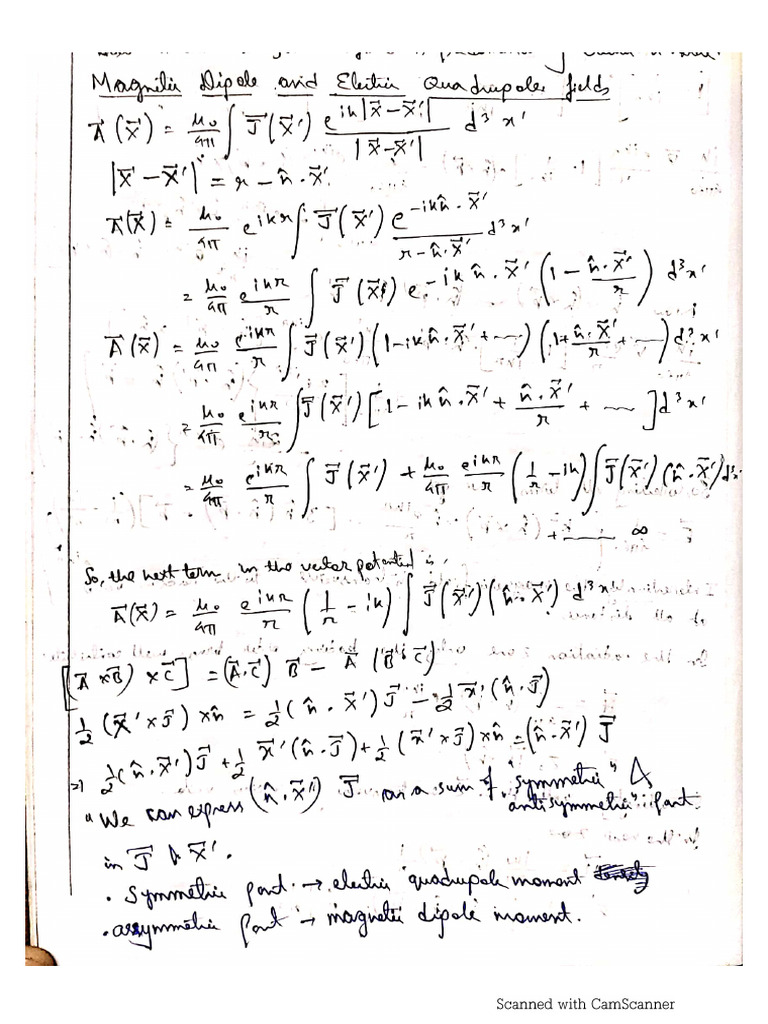 Magnetic Dipole and Electric Quadrupole fields
A⃗(x⃗) = μ₀/4π ∫ J⃗(x⃗') e^{ik|x⃗-x⃗'|}/|x⃗-x⃗'| d³x'
|x⃗-x⃗'| = r - n̂·x⃗'
A⃗(x⃗) = μ₀/4π e^{ikr} ∫ J⃗(x⃗') e^{-ikn̂·x⃗'}/(r-n̂·x⃗') d³x'
= μ₀/4π e^{ikr}/r ∫ J⃗(x⃗') e^{-ikn̂·x⃗'} (1 - n̂·x⃗'/r) d³x'
A⃗(x⃗) = μ₀/4π e^{ikr}/r ∫ J⃗(x⃗') (1-ikn̂·x⃗'+...) (1+ n̂·x⃗'/r + ...) d³x'
= μ₀/4π e^{ikr}/r ∫ J⃗(x⃗') [1-ikn̂·x⃗' + n̂·x⃗'/r + ...] d³x'
= μ₀/4π e^{ikr}/r ∫ J⃗(x⃗') + μ₀/4π e^{ikr}/r (1/r - ik) ∫ J⃗(x⃗') (n̂·x⃗') d³x'
+ ...... ∞
So, the next term in the vector potential is,
A⃗(x⃗) = μ₀/4π e^{ikr}/r (1/r - ik) ∫ J⃗(x⃗') (n̂·x⃗') d³x'
[(A⃗×B⃗)×C⃗] = (A⃗·C⃗) B⃗ - A⃗ (B⃗·C⃗)
1/2 (x⃗'×J⃗)×n̂ = 1/2 (n̂·x⃗') J⃗ - 1/2 x⃗' (n̂·J⃗)
⇒ 1/2 (n̂·x⃗') J⃗ + 1/2 x⃗' (n̂·J⃗) + 1/2 (x⃗'×J⃗)×n̂ = (n̂·x⃗') J⃗
"We can express (n̂·x⃗') J⃗ as a sum of "symmetric" &
antisymmetric" part
in J⃗ & x⃗'.
• Symmetric part → electric quadrupole moment
• assymmetric part → magnetic dipole moment.
Scanned with CamScanner